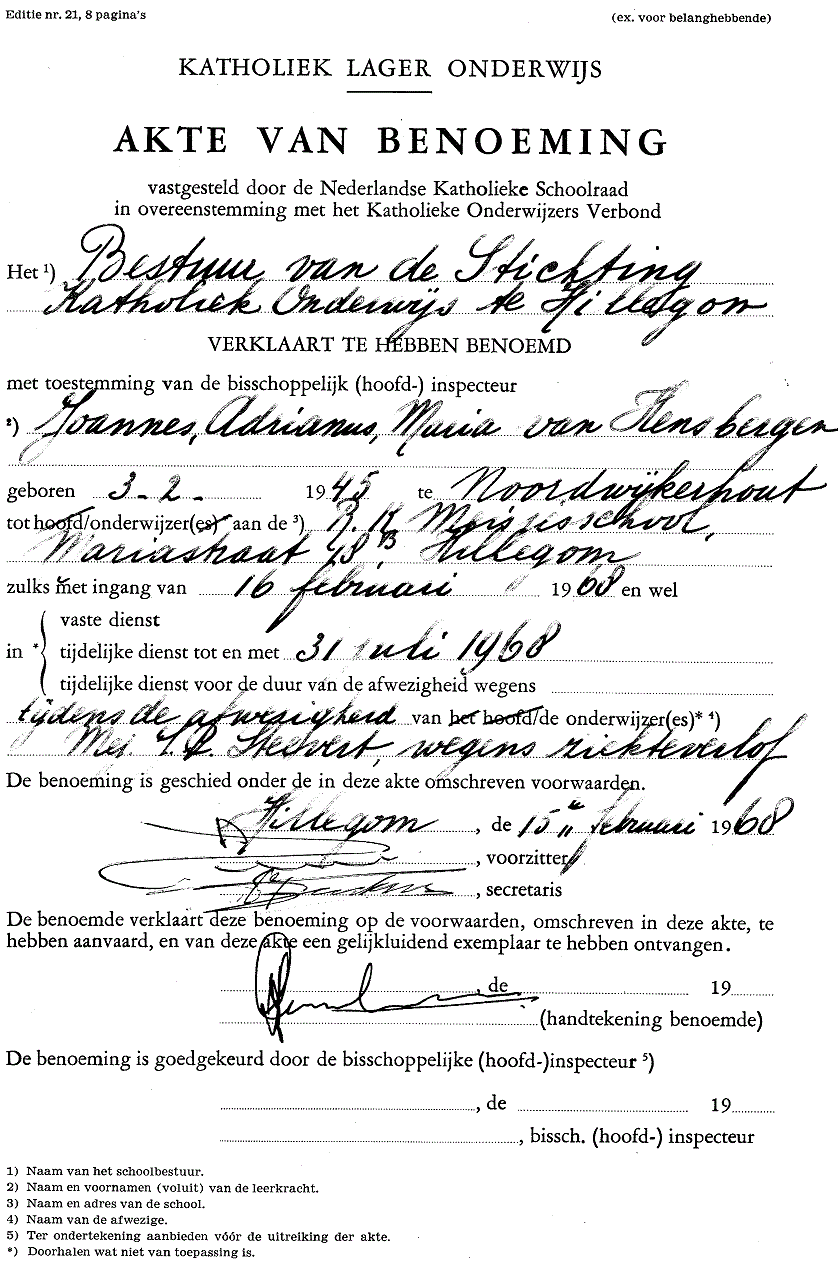 Editie nr. 21, 8 pagina's
(ex. voor belanghebbende)
KATHOLIEK LAGER ONDERWIJS
AKTE VAN BENOEMING
vastgesteld door de Nederlandse Katholieke Schoolraad
in overeenstemming met het Katholieke Onderwijzers Verbond
Het ¹) Bestuur van de Stichting
Katholiek Onderwijs te Hillegom
VERKLAART TE HEBBEN BENOEMD
met toestemming van de bisschoppelijk (hoofd-) inspecteur
²) Joannes, Adrianus, Maria van Hensbergen
geboren 3-2- 1945 te Noordwijkerhout
tot hoofd/onderwijzer(es) aan de ³) R.K Meisjesschool,
Mariastraat 48 B, Hillegom
zulks met ingang van 16 februari 1968 en wel
vaste dienst
in *) tijdelijke dienst tot en met 31 juli 1968
tijdelijke dienst voor de duur van de afwezigheid wegens
tijdens de afwezigheid van het hoofd/de onderwijzer(es)* ⁴)
Mej. wegens ziekteverlof
De benoeming is geschied onder de in deze akte omschreven voorwaarden.
Hillegom, de 15 februari 1968
, voorzitter
, secretaris
De benoemde verklaart deze benoeming op de voorwaarden, omschreven in deze akte, te
hebben aanvaard, en van deze akte een gelijkluidend exemplaar te hebben ontvangen.
, de 19
(handtekening benoemde)
De benoeming is goedgekeurd door de bisschoppelijke (hoofd-)inspecteur ⁵)
, de 19
, bissch. (hoofd-) inspecteur
1) Naam van het schoolbestuur.
2) Naam en voornamen (voluit) van de leerkracht.
3) Naam en adres van de school.
4) Naam van de afwezige.
5) Ter ondertekening aanbieden vóór de uitreiking der akte.
*) Doorhalen wat niet van toepassing is.